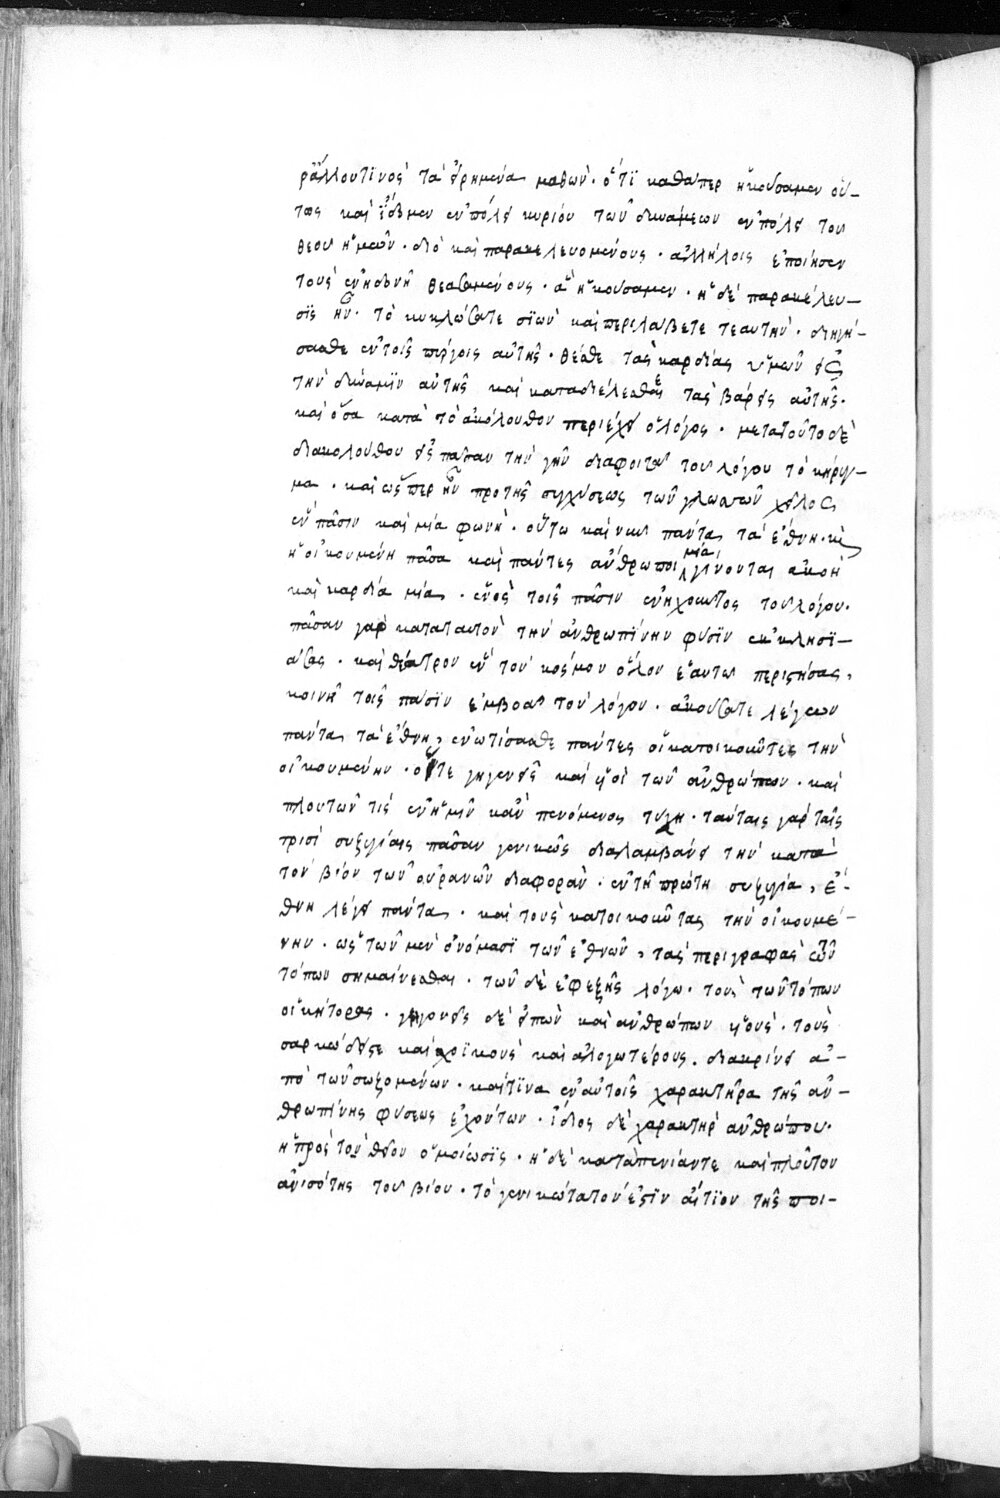 ρ' ἄλλου τινὸς τὰ εἰρημένα μαθὼν· ὅτι καθάπερ ἠκούσαμεν οὕ-
τως καὶ εἴδομεν ἐν πόλει κυρίου τῶν δυνάμεων ἐν πόλει τοῦ
θεοῦ ἡμῶν· διὸ καὶ παρακελευομένους· ἀλλήλοις ἐποίησεν
τοὺς ἐν ἡδονῇ θεασαμένους· ἃ ἠκούσαμεν· ἡ δὲ παρακέλευ-
σις ἦν· τὸ κυκλώσατε σιὼν καὶ περιλάβετε τε αὐτὴν· διηγή-
σασθε ἐν τοῖς πύργοις αὐτῆς· θέσθε τὰς καρδίας ὑμῶν εἰς
τὴν δύναμιν αὐτῆς καὶ καταδιέλεσθε τὰς βάρεις αὐτῆς·
καὶ ὅσα κατὰ τὸ ἀκόλουθον περιέχει ὁ λόγος· μετὰ τοῦτο δὲ
διακολούθου εἰς πᾶσαν τὴν γῆν διαφοιτᾷ τοῦ λόγου τὸ κήρυγ-
μα· καὶ ὥσπερ ἦν πρὸ τῆς συγχύσεως τῶν γλωσσῶν χεῖλος
ἓν πᾶσιν καὶ μία φωνὴ· οὕτω καὶ νῦν πάντα τὰ ἔθνη· καὶ
ἡ οἰκουμένη πᾶσα καὶ πάντες ἄνθρωποι μία γίνονται ἀκοὴ
καὶ καρδία μία· ἑνὸς τοῖς πᾶσιν ἐνηχοῦντος τοῦ λόγου·
πᾶσαν γὰρ κατὰ ταυτὸν τὴν ἀνθρωπίνην φύσιν ἐκκλησι-
άσας· καὶ θέατρον ἓν τὸν κόσμον ὅλον ἑαυτῷ περιστήσας,
κοινῇ τοῖς πᾶσιν ἐμβοᾷ τὸν λόγον· ἀκούσατε λέγων
πάντα τὰ ἔθνη, ἐνωτίσασθε πάντες οἱ κατοικοῦντες τὴν
οἰκουμένην· οἵ τε γηγενεῖς καὶ υἱοὶ τῶν ἀνθρώπων· καὶ
πλουτῶν τις ἐν ἡμῖν κἂν πενόμενος τύχῃ· ταύταις γὰρ ταῖς
τρισὶ συζυγίαις πᾶσαν γενικῶς διαλαμβάνει τὴν κατὰ
τὸν βίον τῶν οὐρανῶν διαφοράν· ἐν τῇ πρώτῃ συζυγίᾳ, ἔ-
θνη λέγει πάντα· καὶ τοὺς κατοικοῦντας τὴν οἰκουμέ-
νην· ὡς τῶν μὲν ὀνόμασι τῶν ἐθνῶν, τὰς περιγραφὰς τῶν
τόπων σημαίνεσθαι· τῶν δὲ ἐφεξῆς λόγῳ· τοὺς τῶν τόπων
οἰκήτορας· γηγενεῖς δὲ εἰπὼν καὶ ἀνθρώπων υἱοὺς· τοὺς
σαρκώδεις τε καὶ χοϊκοὺς καὶ ἀλογωτέρους. διακρίνει ἀ-
πὸ τῶν σωζομένων· καί τινα ἐν αὐτοῖς χαρακτῆρα τῆς ἀν-
θρωπίνης φύσεως ἐχόντων· ἴδιος δὲ χαρακτὴρ ἀνθρώπου·
ἡ πρὸς τὸν θεὸν ὁμοίωσις· ἡ δὲ κατὰ πενίαν τε καὶ πλοῦτον
ἀνισότης τοῦ βίου· τὸ γενικώτατον ἐστὶν αἴτιον τῆς ποι-